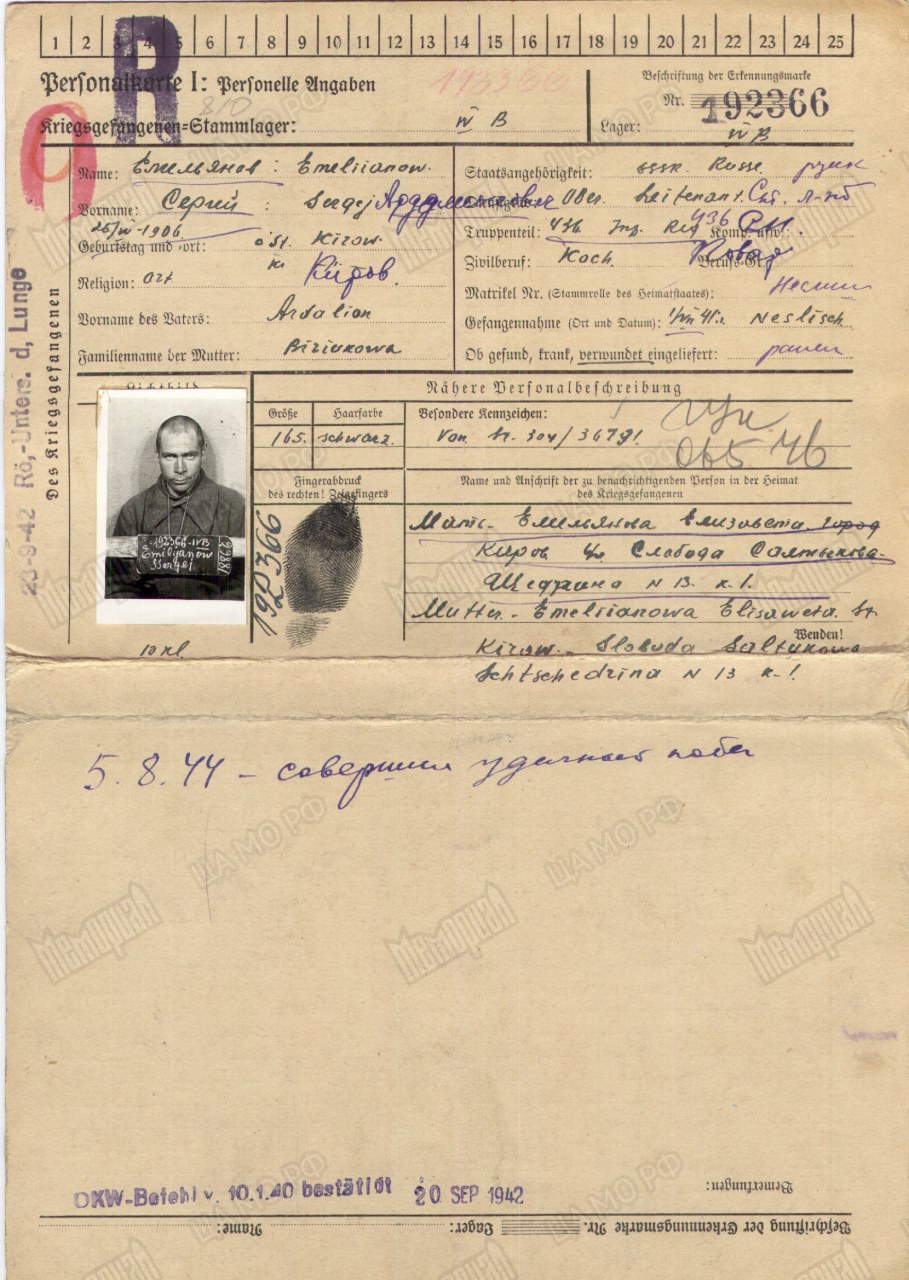 1 2 3 4 5 6 7 8 9 10 11 12 13 14 15 16 17 18 19 20 21 22 23 24 25
R
Personalkarte I: Personelle Angaben
Kriegsgefangenen=Stammlager: IV B
Beschriftung der Erkennungsmarke
Nr. 192366
Lager: IV B
Des Kriegsgefangenen
23-9-42 Rö,-Unters. d, Lunge
Name: Емельянов : Emeliianow.
Vorname: Сергей : Sergej
Geburtstag und -ort: Kirow.
Киров.
Religion: Ort
Vorname des Vaters: Ardalion
Familienname der Mutter:
Staatsangehörigkeit: SSSR. Russe. русск
Ober. Leitenant. Ст. л-т
Truppenteil: 436 Inf. Reg 436
Zivilberuf: Koch. Повар
Matrikel Nr. (Stammrolle des Heimatstaates):
Gefangennahme (Ort und Datum):
Ob gesund, krank, verwundet eingeliefert: ранен
Nähere Personalbeschreibung
Größe Haarfarbe Besondere Kennzeichen:
165. schwarz.
Fingerabdruck
des rechten! Zeigefingers
192366
Name und Anschrift der zu benachrichtigenden Person in der Heimat
des Kriegsgefangenen
Мать- Емельянова Елизовета. город
Киров Слобода Салтыкова-
Щедрина N 13. к. 1.
Mutter- Emeliianowa Elisaweta. St.
Kirow- Sloboda Saltukowa
Schtschedrina N 13 K-1.
Wenden!
192366-IVB
Emilijanow
Sergej
5.8.44 - совершил удачный побег
ЦАМО РФ
Мемориал
OKW-Befehl v. 10.1.40 bestätigt 20 SEP 1942
Bemerkungen:
Beschriftung der Erkennungsmarke Nr. Lager: Name: